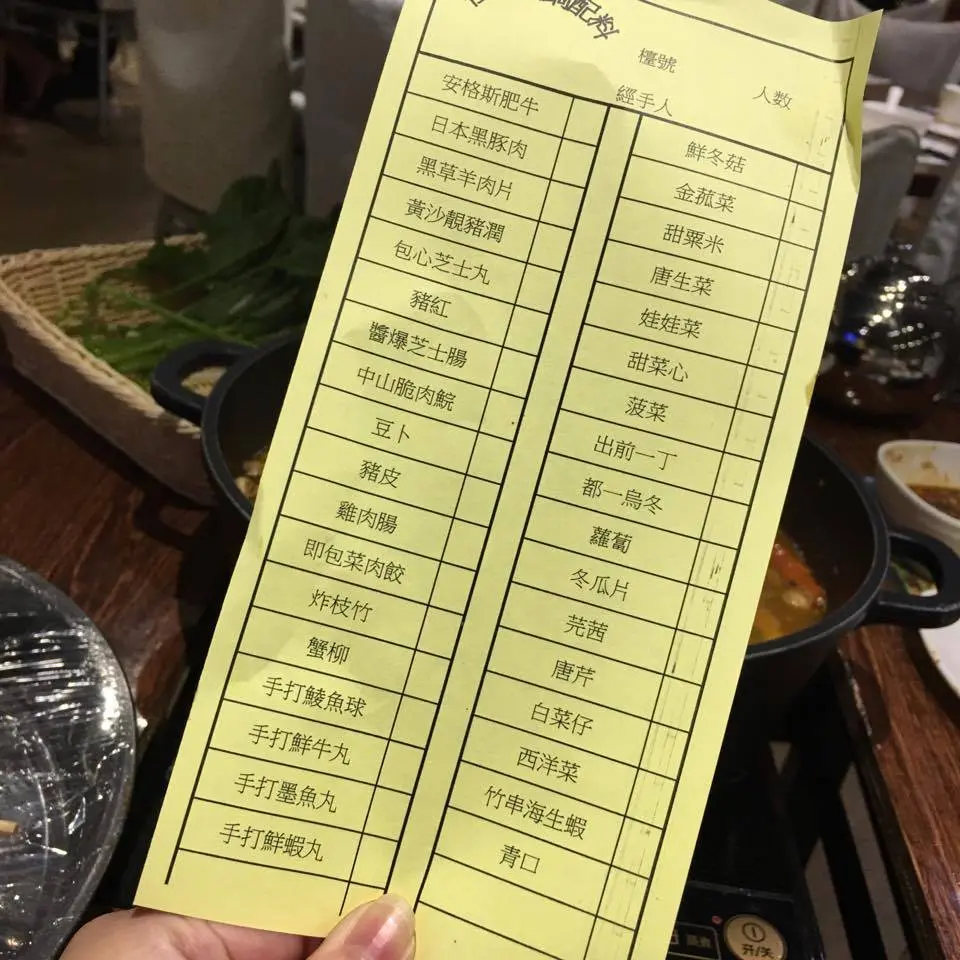 配料
檯號
經手人
人数
安格斯肥牛
日本黑豚肉
黑草羊肉片
黃沙靚豬潤
包心芝士丸
豬紅
醬爆芝士腸
中山脆肉鯇
豆卜
豬皮
雞肉腸
即包菜肉餃
炸枝竹
蟹柳
手打鯪魚球
手打鮮牛丸
手打墨魚丸
手打鮮蝦丸
鮮冬菇
金菰菜
甜粟米
唐生菜
娃娃菜
甜菜心
菠菜
出前一丁
都一烏冬
蘿蔔
冬瓜片
芫茜
唐芹
白菜仔
西洋菜
竹串海生蝦
青口
开/关